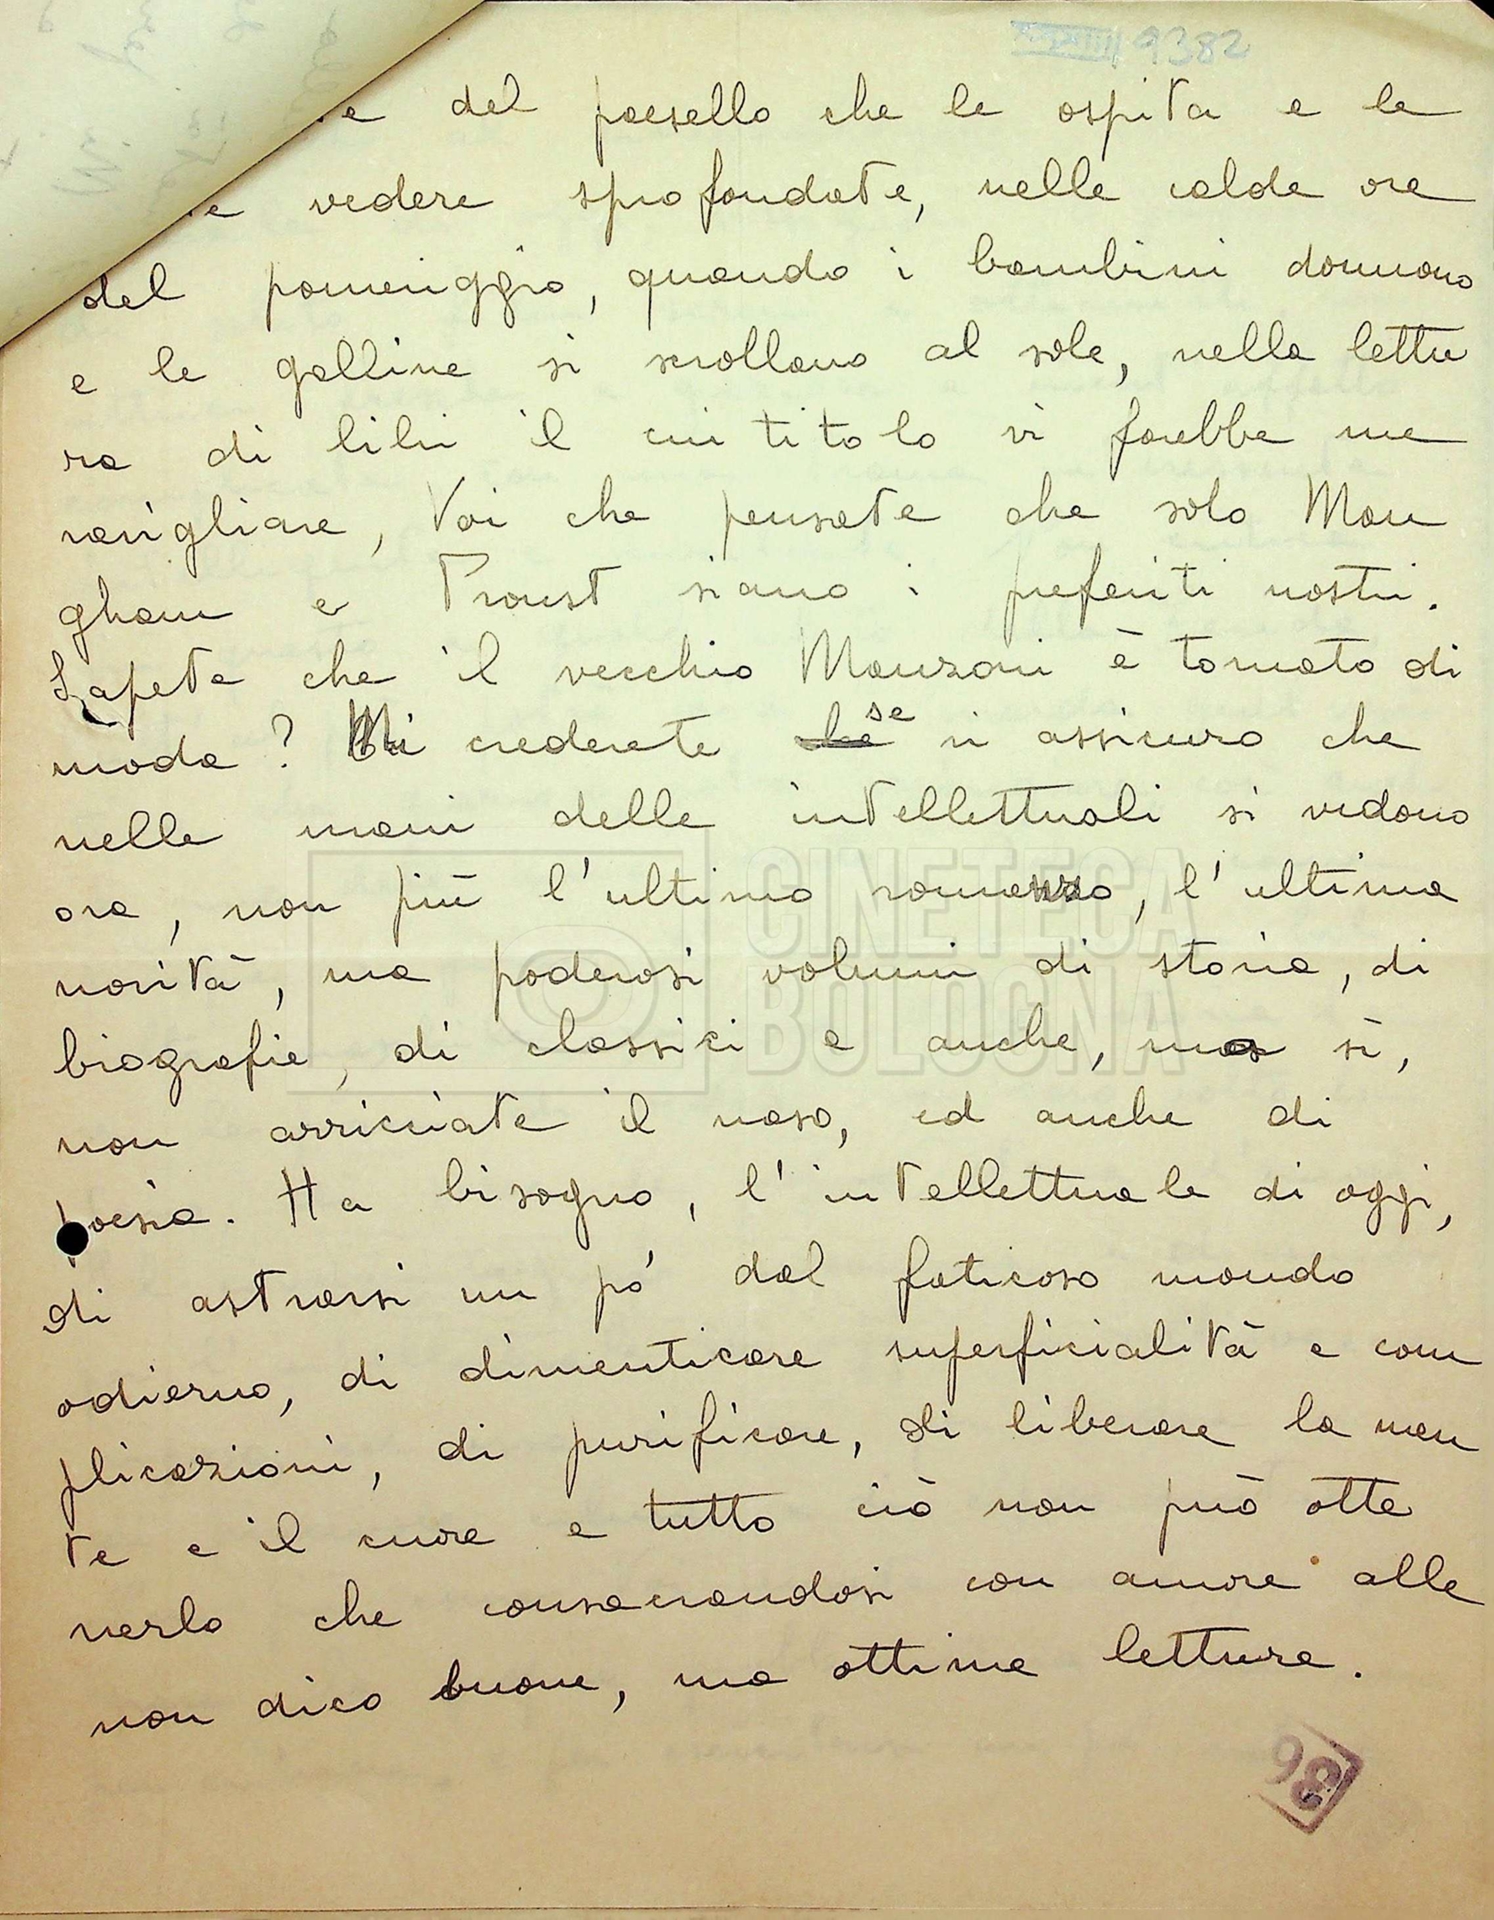 9382
del paesello che le ospita e le
vedere sprofondate, nelle calde ore
del pomeriggio, quando i bambini dormono
e le galline si scrollano al sole, nella lettu
ra di libri il cui titolo vi farebbe me
ravigliare, Voi che pensate che solo Mau
gham e Proust siano i preferiti nostri.
Sapete che il vecchio Manzoni è tornato di
moda? Mi crederete che se vi assicuro che
nelle mani delle intellettuali si vedono
ora, non più l'ultimo romanzo, l'ultima
novità, ma poderosi volumi di storia, di
biografie, di classici e anche, ma sì,
non arricciate il naso, ed anche di
poesia. Ha bisogno, l'intellettuale di oggi,
di astrarsi un pò dal faticoso mondo
odierno, di dimenticare superficialità e com
plicazioni, di purificare, di liberare la men
te e il cuore e tutto ciò non può otte
nerlo che consacrandosi con amore alle
non dico buone, ma ottime letture.
CINETECA
BOLOGNA
98